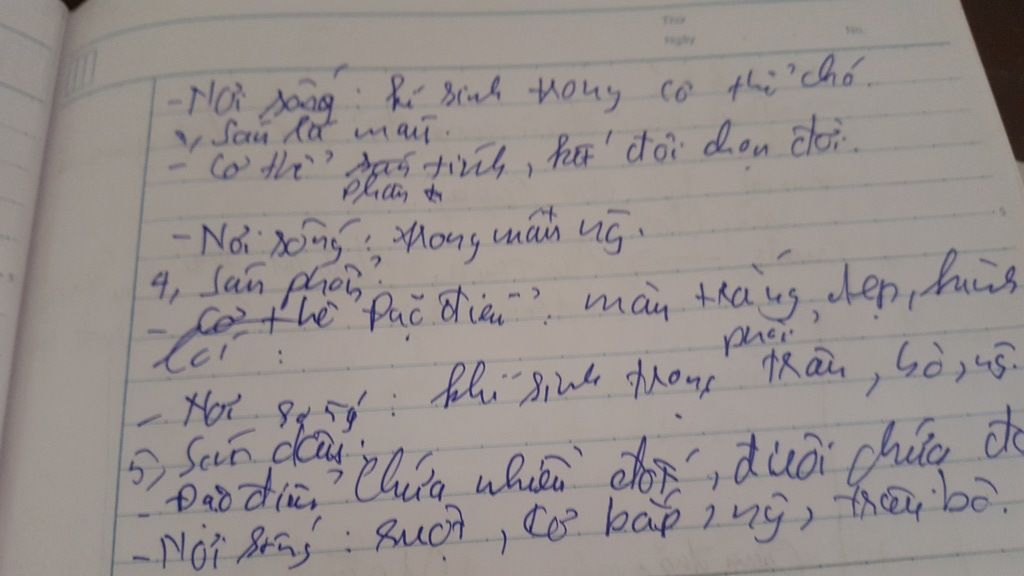 Thứ
Ngày No.
- Nơi sống : kí sinh trong cơ thể chó.
3, Sán lá máu.
- Cơ thể phân tính, kết đôi chọn đôi.
- Nơi sống : trong máu ng.
4, Sán phổi
- Cơ thể Đặc điểm : màu trắng, dẹp, hình
lá :
- Nơi sống : khí sinh trong phổi trâu, bò, ng.
5, Sán dây :
- Đặc điểm Chứa nhiều đốt, đuôi chứa
- Nơi sống : ruột, cơ bắp, ng, trâu bò.